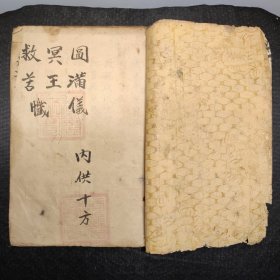 圓滿儀
冥王
救苦懺
內供十方